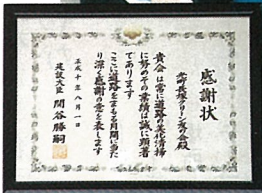 感謝状
貴会は常に道路の美化清掃
に努めその業績は誠に顕著
であります
ここに道路をまもる月間に当た
り深く感謝の意を表します
平成十年八月一日
建設大臣 関谷勝嗣